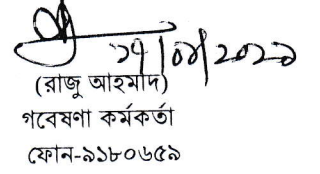 ২৭/০৪/২০২১
(রাজু আহমাদ)
গবেষণা কর্মকর্তা
ফোন-৯১৮০৬৫৯